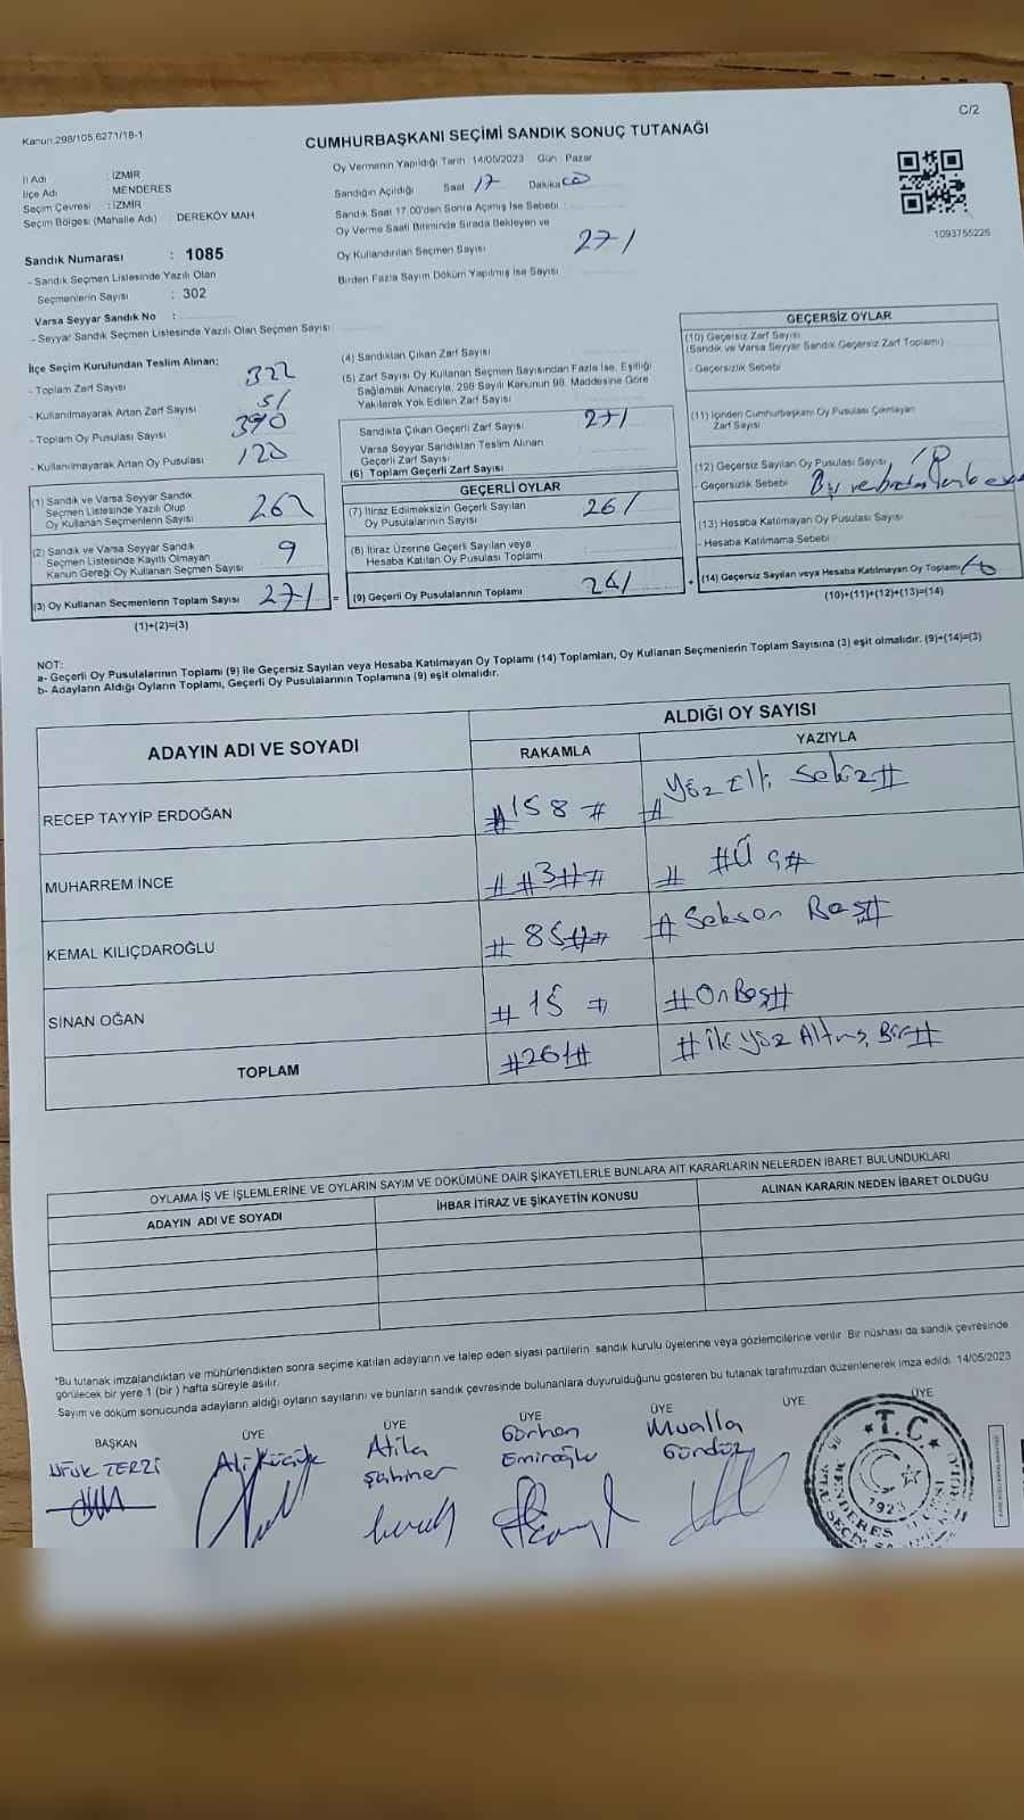 C/2
Kanun.298/105,6271/18-1
CUMHURBAŞKANI SEÇİMİ SANDIK SONUÇ TUTANAĞI
İl Adı : İZMİR
İlçe Adı : MENDERES
Seçim Çevresi : İZMİR
Seçim Bölgesi (Mahalle Adı) : DEREKÖY MAH
Sandık Numarası : 1085
- Sandık Seçmen Listesinde Yazılı Olan
Seçmenlerin Sayısı : 302
Varsa Seyyar Sandık No :
- Seyyar Sandık Seçmen Listesinde Yazılı Olan Seçmen Sayısı
Oy Vermenin Yapıldığı Tarih 14/05/2023 Gün : Pazar
Sandığın Açıldığı Saat 17 Dakika 00
Sandık Saat 17:00'den Sonra Açılmış İse Sebebi :
Oy Verme Saati Bitiminde Sırada Bekleyen ve
Oy Kullandırılan Seçmen Sayısı 271
Birden Fazla Sayım Döküm Yapılmış İse Sayısı
1093755226
İlçe Seçim Kurulundan Teslim Alınan:
- Toplam Zarf Sayısı 322
- Kullanılmayarak Artan Zarf Sayısı 51
- Toplam Oy Pusulası Sayısı 390
- Kullanılmayarak Artan Oy Pusulası 120
(1) Sandık ve Varsa Seyyar Sandık
Seçmen Listesinde Yazılı Olup
Oy Kullanan Seçmenlerin Sayısı 262
(2) Sandık ve Varsa Seyyar Sandık
Seçmen Listesinde Kayıtlı Olmayan
Kanun Gereği Oy Kullanan Seçmen Sayısı 9
(3) Oy Kullanan Seçmenlerin Toplam Sayısı 271 =
(1)+(2)=(3)
(4) Sandıktan Çıkan Zarf Sayısı
(5) Zarf Sayısı Oy Kullanan Seçmen Sayısından Fazla İse, Eşitliği
Sağlamak Amacıyla, 298 Sayılı Kanunun 98. Maddesine Göre
Yakılarak Yok Edilen Zarf Sayısı
Sandıkta Çıkan Geçerli Zarf Sayısı 271
Varsa Seyyar Sandıktan Teslim Alınan
Geçerli Zarf Sayısı
(6) Toplam Geçerli Zarf Sayısı
GEÇERLİ OYLAR
(7) İtiraz Edilmeksizin Geçerli Sayılan
Oy Pusulalarının Sayısı 261
(8) İtiraz Üzerine Geçerli Sayılan veya
Hesaba Katılan Oy Pusulası Toplamı
(9) Geçerli Oy Pusulalarının Toplamı 261 +
GEÇERSİZ OYLAR
(10) Geçersiz Zarf Sayısı
(Sandık ve Varsa Seyyar Sandık Geçersiz Zarf Toplamı)
- Geçersizlik Sebebi
(11) İçinden Cumhurbaşkanı Oy Pusulası Çıkmayan
Zarf Sayısı
(12) Geçersiz Sayılan Oy Pusulası Sayısı 10
- Geçersizlik Sebebi
(13) Hesaba Katılmayan Oy Pusulası Sayısı
- Hesaba Katılmama Sebebi
(14) Geçersiz Sayılan veya Hesaba Katılmayan Oy Toplamı 10
(10)+(11)+(12)+(13)=(14)
NOT:
a- Geçerli Oy Pusulalarının Toplamı (9) ile Geçersiz Sayılan veya Hesaba Katılmayan Oy Toplamı (14) Toplamları, Oy Kullanan Seçmenlerin Toplam Sayısına (3) eşit olmalıdır. (9)+(14)=(3)
b- Adayların Aldığı Oyların Toplamı, Geçerli Oy Pusulalarının Toplamına (9) eşit olmalıdır.
ADAYIN ADI VE SOYADI
ALDIĞI OY SAYISI
RAKAMLA YAZIYLA
RECEP TAYYİP ERDOĞAN #158# #Yüz Elli Sekiz#
MUHARREM İNCE ##3## # #Üç#
KEMAL KILIÇDAROĞLU #85## #Seksen Beş#
SİNAN OĞAN #15 # #OnBeş#
TOPLAM #261# #İki Yüz Altmış Bir#
OYLAMA İŞ VE İŞLEMLERİNE VE OYLARIN SAYIM VE DÖKÜMÜNE DAİR ŞİKAYETLERLE BUNLARA AİT KARARLARIN NELERDEN İBARET BULUNDUKLARI
ADAYIN ADI VE SOYADI İHBAR İTİRAZ VE ŞİKAYETİN KONUSU ALINAN KARARIN NEDEN İBARET OLDUĞU
*Bu tutanak imzalandıktan ve mühürlendikten sonra seçime katılan adayların ve talep eden siyasi partilerin sandık kurulu üyelerine veya gözlemcilerine verilir. Bir nüshası da sandık çevresinde
görülecek bir yere 1 (bir) hafta süreyle asılır.
Sayım ve döküm sonucunda adayların aldığı oyların sayılarını ve bunların sandık çevresinde bulunanlara duyurulduğunu gösteren bu tutanak tarafımızdan düzenlenerek imza edildi. 14/05/2023
BAŞKAN ÜYE ÜYE ÜYE ÜYE ÜYE ÜYE
UFUK TERZİ
Ali Küçük
Atila
Şahiner
Gürhan
Emiroğlu
Mualla
Gündüz
T.C.
1923
MENDERES